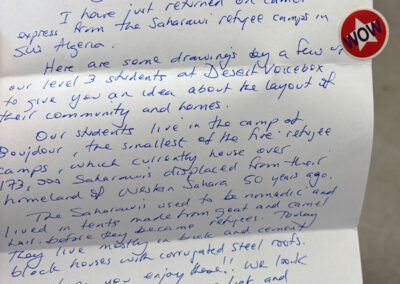 I have just returned on camel
express from the Saharawi refugee camps in
SW Algeria.
WOW
Here are some drawings by a few of
our level 3 students at Desert Voicebox
to give you an idea about the layout of
their community and homes.
Our students live in the camp of
Boujdour, the smallest of the five refugee
camps, which currently house over
173,000 Saharawis displaced from their
homeland of Western Sahara 50 years ago.
The Saharawis used to be nomadic and
lived in tents made from goat and camel
hair before they became refugees. Today
They live mostly in brick and cement
block houses with corrugated steel roofs.
you enjoy these!! We look
and